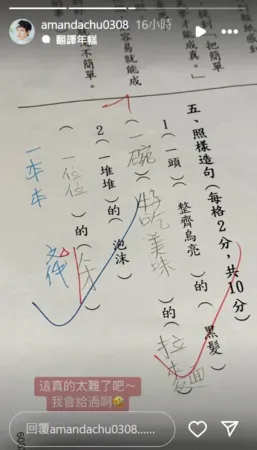 amandachu0308 16小時
翻譯年糕
「把簡單
才能成真。」
容易就能成
不簡單。
五、照樣造句(每格2分,共10分)
1(一頭)(整齊烏亮)的(黑髮)
(一碗)(好吃美味)的(拉麵)
2(一堆堆)的(泡沫)
(一位位)的(
一本本
這真的太難了吧~
我會給過啊🤣
回覆amandachu0308......